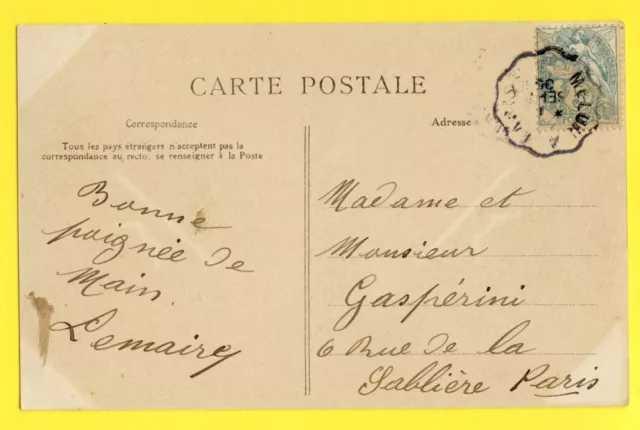 CARTE POSTALE
Correspondance
Tous les pays étrangers n'acceptent pas la
correspondance au recto, se renseigner à la Poste
Bonne
poignée de
Main.
Lemairy
Adresse
MELUN A
SEPT
05
Madame et
Monsieur
Gaspérini
6 Rue de la
Sablière Paris